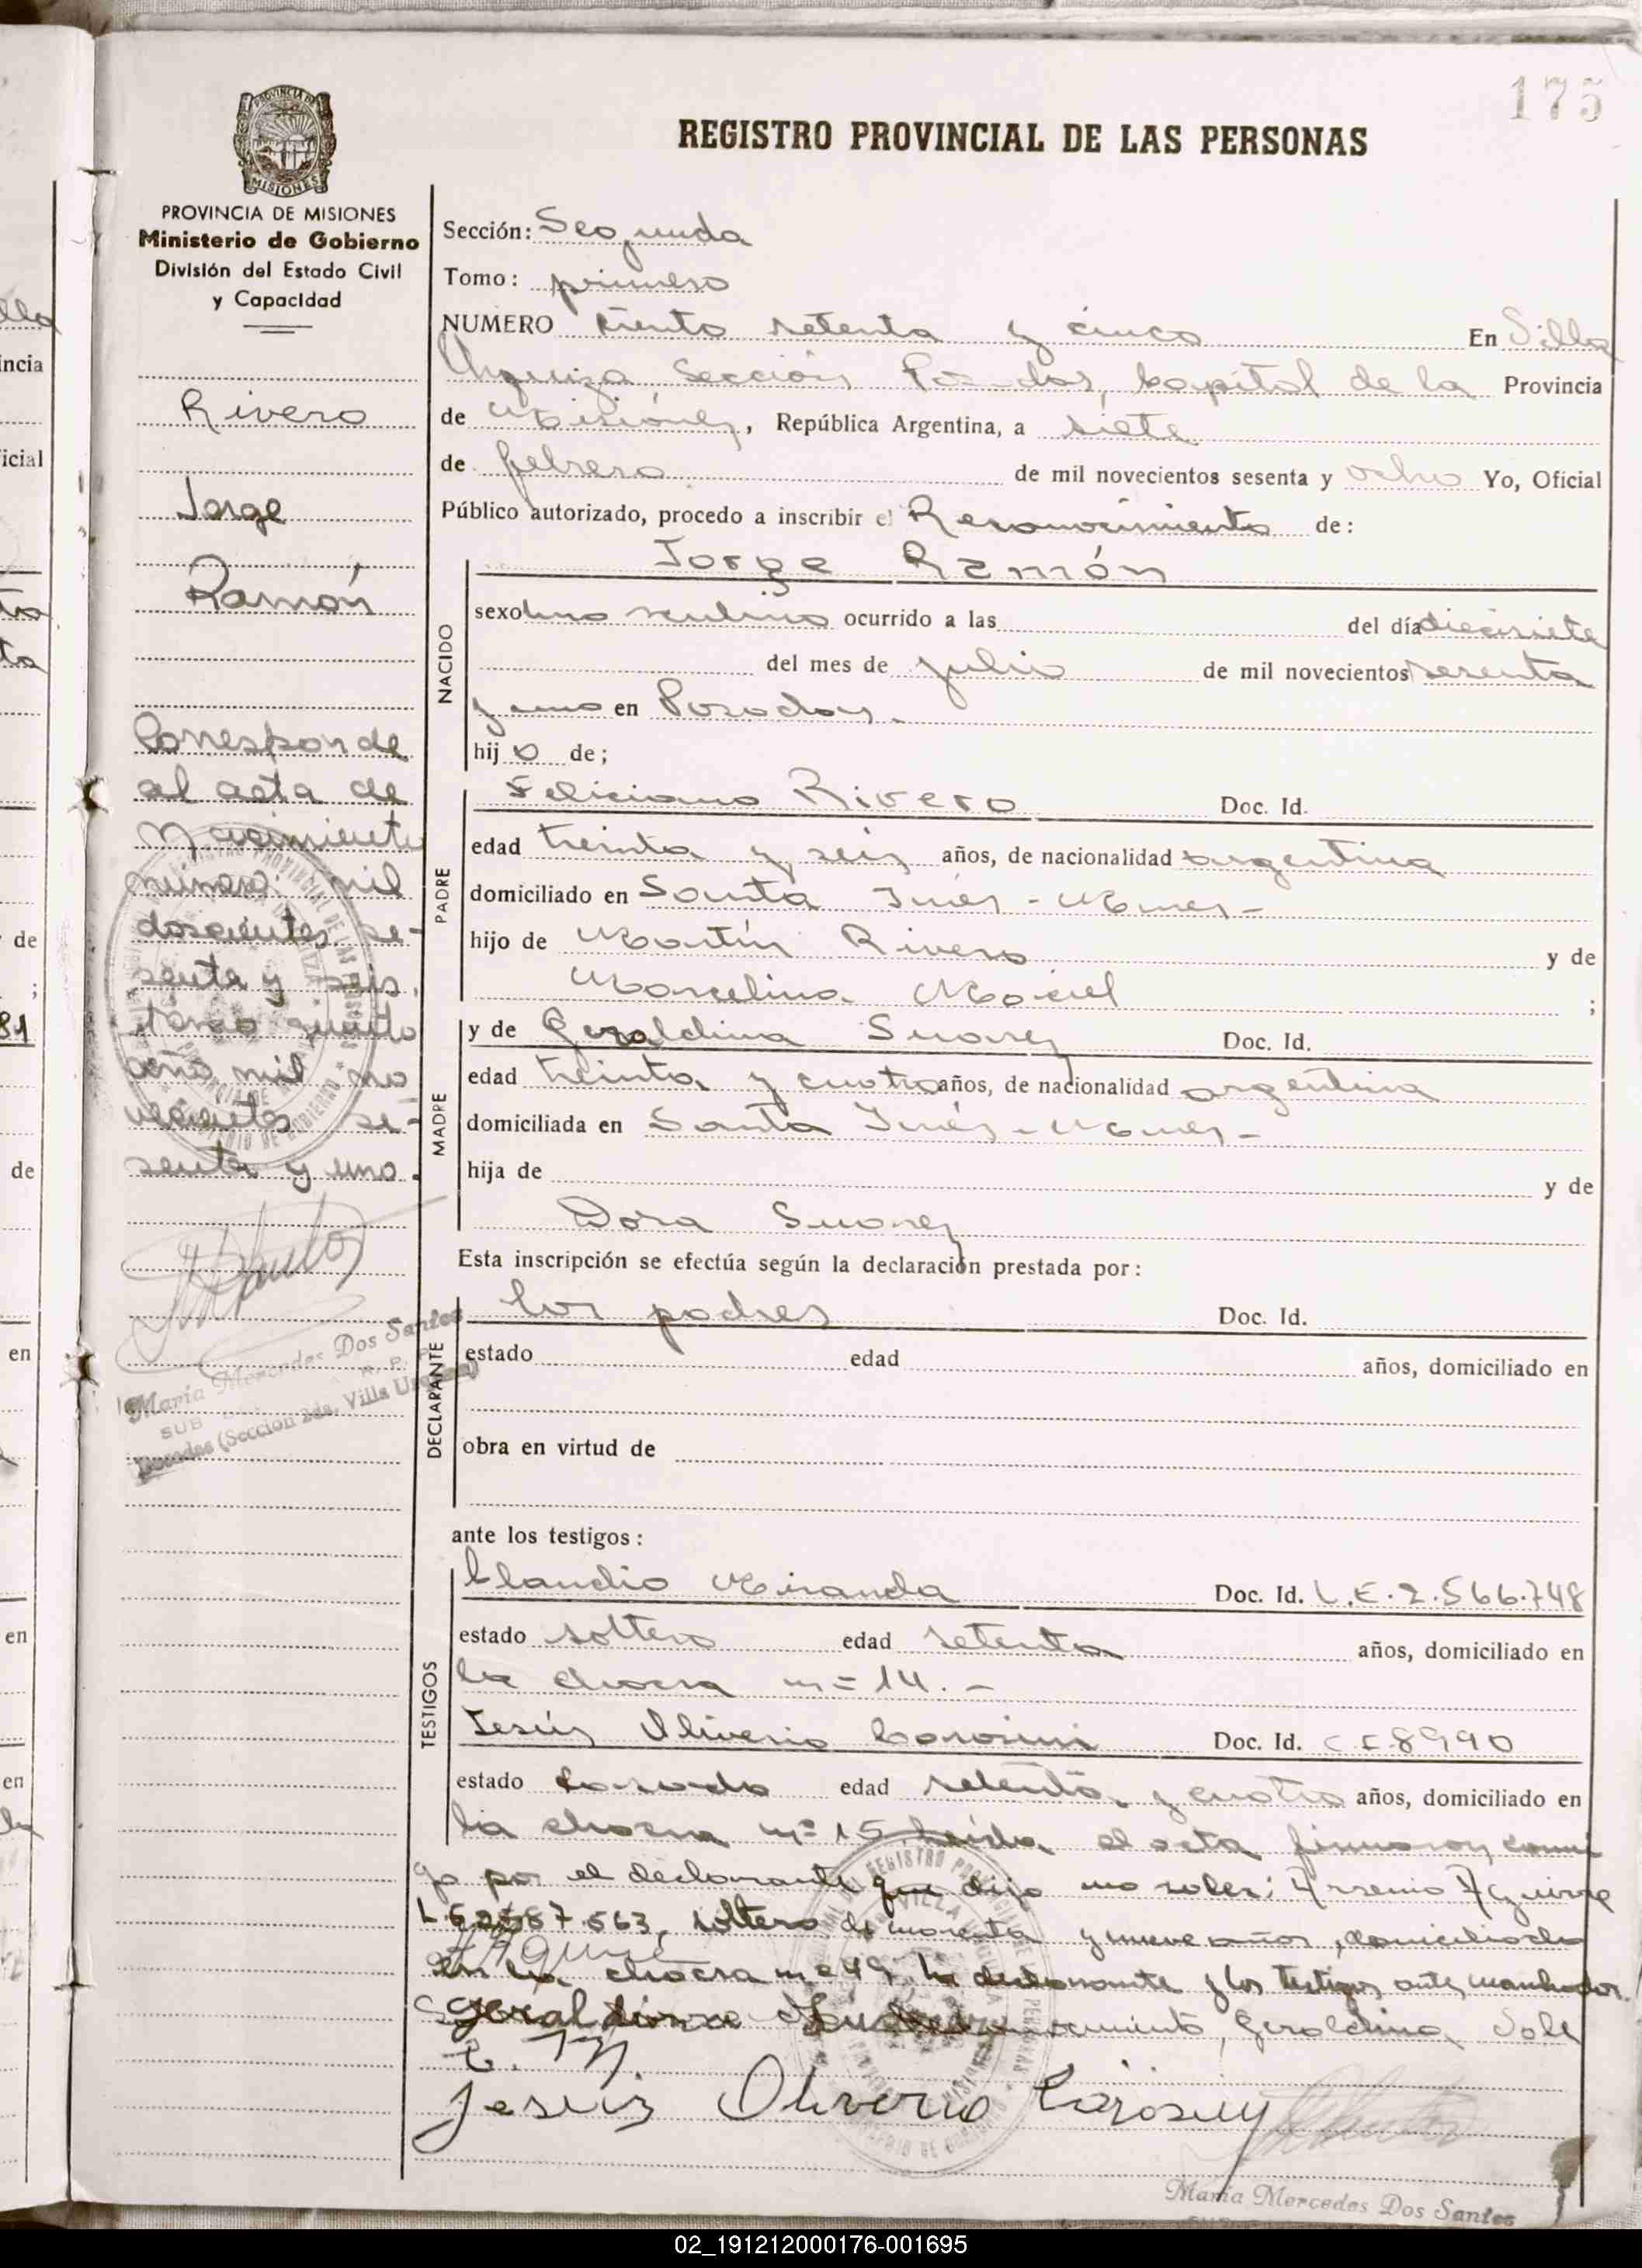 175
REGISTRO PROVINCIAL DE LAS PERSONAS
PROVINCIA DE MISIONES
Ministerio de Gobierno
División del Estado Civil
y Capacidad
Rivero
Jorge
Ramón
Corresponde
al acta de
Nacimiento
número mil
doscientos se-
senta y seis,
tomo quinto
año mil no
vecientos se-
senta y uno.
María Mercedes Dos Santos
SUB
Posadas (Sección 2da. Villa Urquiza)
Sección: Segunda
Tomo: primero
NUMERO ciento setenta y cinco En Villa
Urquiza Sección Posadas, Capital de la Provincia
de Misiones, República Argentina, a siete
de febrero de mil novecientos sesenta y ocho Yo, Oficial
Público autorizado, procedo a inscribir el Reconocimiento de:
NACIDO
Jorge Ramón
sexo masculino ocurrido a las del día diecisiete
del mes de julio de mil novecientos sesenta
y uno en Posadas.
hijo de;
PADRE
Feliciano Rivero Doc. Id.
edad treinta y seis años, de nacionalidad argentina
domiciliado en Santa Inés - Mnes -
hijo de Martín Rivero y de
Marcelina Maciel ;
MADRE
y de Geraldina Suarez Doc. Id.
edad treinta y cuatro años, de nacionalidad argentina
domiciliada en Santa Inés - Mnes -
hija de y de
Dora Suarez
Esta inscripción se efectúa según la declaración prestada por:
DECLARANTE
los padres Doc. Id.
estado edad años, domiciliado en
obra en virtud de
ante los testigos:
TESTIGOS
Claudio Miranda Doc. Id. L.E. 2.566.748
estado soltero edad setenta años, domiciliado en
la chacra nº 14. -
Jesús Oliverio Carosini Doc. Id. 8990
estado casado edad setenta y cuatro años, domiciliado en
la chacra nº 15 leída el acta firmaron conmi
go por el declarante que dijo no saber: Arsenio Aguirre
L.E. 563, soltero de noventa y nueve años, domiciliado
en la chacra nº 49, la declarante y los testigos ante mencionados.
Geraldina
Jesus Oliverio Carosini
María Mercedes Dos Santos
02_191212000176-001695